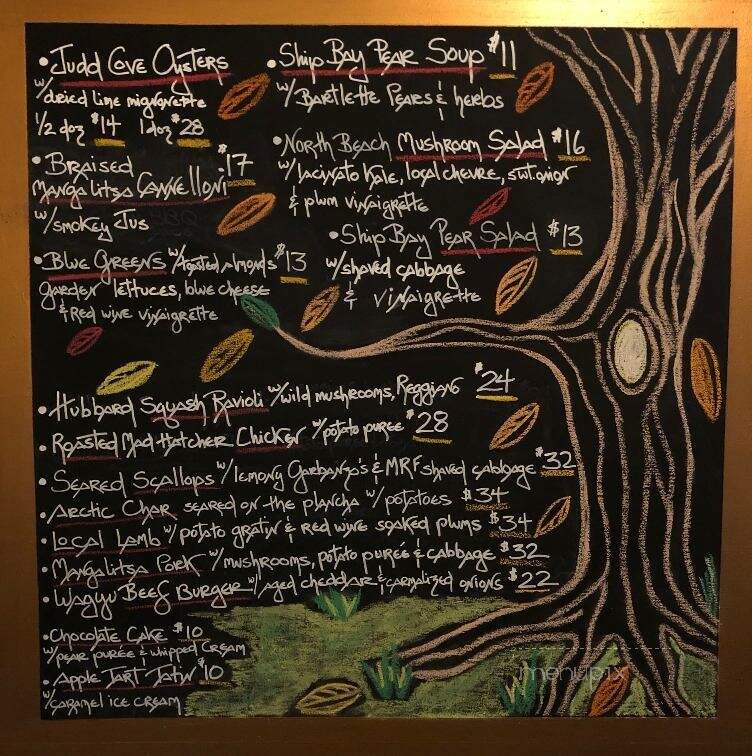 • Judd Cove Oysters
w/dried lime mignonette
1/2 doz $14 1 doz $28
• Braised $17
Mangalitsa Cannelloni
w/smokey Jus
• Blue Greens w/toasted almonds $13
garden lettuces, blue cheese
& red wine vinaigrette
• Ship Bay Pear Soup $11
w/ Bartlette Pears & herbs
• North Beach Mushroom Salad $16
w/ lacinato kale, local chevre, swt. onion
& plum vinaigrette
• Ship Bay Pear Salad $13
w/shaved cabbage
& vinaigrette
• Hubbard Squash Ravioli w/wild mushrooms, Reggiano $24
• Roasted Mad Hatcher Chicken w/potato puree $28
• Seared Scallops w/lemony Garbanzo's & MRF shaved cabbage $32
• Arctic Char seared on the plancha w/potatoes $34
• Local Lamb w/potato gratin & red wine soaked plums $34
• Mangalitsa Pork w/mushrooms, potato purée & cabbage $32
• Wagyu Beef Burger w/aged cheddar & carmalized onions $22
• Chocolate Cake $10
w/pear purée & whipped cream
• Apple Tart Tatin $10
w/caramel ice cream
menupix